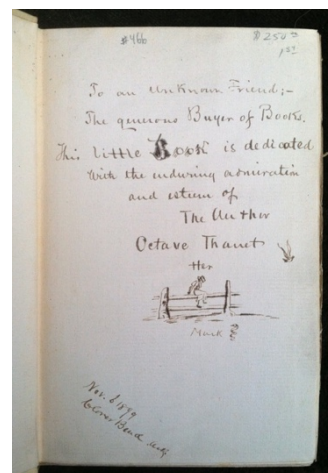 #466
$25.00
1st
To an Unknown Friend;-
The generous Buyer of Books.
This little Book is dedicated
With the enduring admiration
and esteem of
The Author
Octave Thanet
Her
Mark
Nov. 1899
Clover Bend